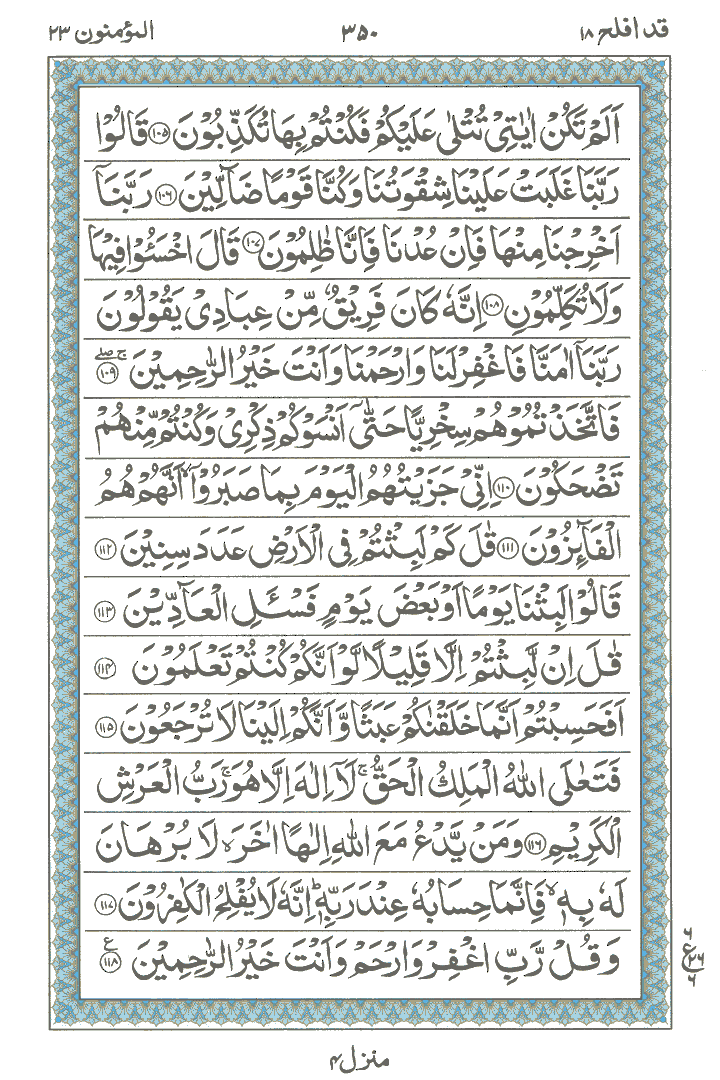 قد افلح ١٨
٣٥٠
المؤمنون ٢٣
اَلَمْ تَكُنْ اٰيٰتِيْ تُتْلٰى عَلَيْكُمْ فَكُنْتُمْ بِهَا تُكَذِّبُوْنَ ﴿١٠٥﴾ قَالُوْا
رَبَّنَا غَلَبَتْ عَلَيْنَا شِقْوَتُنَا وَكُنَّا قَوْمًا ضَآلِّيْنَ ﴿١٠٦﴾ رَبَّنَآ
اَخْرِجْنَا مِنْهَا فَاِنْ عُدْنَا فَاِنَّا ظٰلِمُوْنَ ﴿١٠٧﴾ قَالَ اخْسَـُٔوْا فِيْهَا
وَلَا تُكَلِّمُوْنِ ﴿١٠٨﴾ اِنَّهٗ كَانَ فَرِيْقٌ مِّنْ عِبَادِيْ يَقُوْلُوْنَ
رَبَّنَآ اٰمَنَّا فَاغْفِرْ لَنَا وَارْحَمْنَا وَاَنْتَ خَيْرُ الرّٰحِمِيْنَ ﴿١٠٩﴾ ج صلے
فَاتَّخَذْتُمُوْهُمْ سِخْرِيًّا حَتّٰٓى اَنْسَوْكُمْ ذِكْرِيْ وَكُنْتُمْ مِّنْهُمْ
تَضْحَكُوْنَ ﴿١١٠﴾ اِنِّيْ جَزَيْتُهُمُ الْيَوْمَ بِمَا صَبَرُوْٓا ۙ اَنَّهُمْ هُمُ
الْفَآئِزُوْنَ ﴿١١١﴾ قٰلَ كَمْ لَبِثْتُمْ فِي الْاَرْضِ عَدَدَ سِنِيْنَ ﴿١١٢﴾
قَالُوْا لَبِثْنَا يَوْمًا اَوْ بَعْضَ يَوْمٍ فَسْـَٔلِ الْعَآدِّيْنَ ﴿١١٣﴾
قٰلَ اِنْ لَّبِثْتُمْ اِلَّا قَلِيْلًا لَّوْ اَنَّكُمْ كُنْتُمْ تَعْلَمُوْنَ ﴿١١٤﴾
اَفَحَسِبْتُمْ اَنَّمَا خَلَقْنٰكُمْ عَبَثًا وَّاَنَّكُمْ اِلَيْنَا لَا تُرْجَعُوْنَ ﴿١١٥﴾
فَتَعٰلَى اللّٰهُ الْمَلِكُ الْحَقُّ ۚ لَآ اِلٰهَ اِلَّا هُوَ ۚ رَبُّ الْعَرْشِ
الْكَرِيْمِ ﴿١١٦﴾ وَمَنْ يَّدْعُ مَعَ اللّٰهِ اِلٰهًا اٰخَرَ ۙ لَا بُرْهَانَ
لَهٗ بِهٖ ۙ فَاِنَّمَا حِسَابُهٗ عِنْدَ رَبِّهٖ ؕ اِنَّهٗ لَا يُفْلِحُ الْكٰفِرُوْنَ ﴿١١٧﴾
وَقُلْ رَّبِّ اغْفِرْ وَارْحَمْ وَاَنْتَ خَيْرُ الرّٰحِمِيْنَ ﴿١١٨﴾ ع
٦
ع ٢٦
٦
منزل ٤